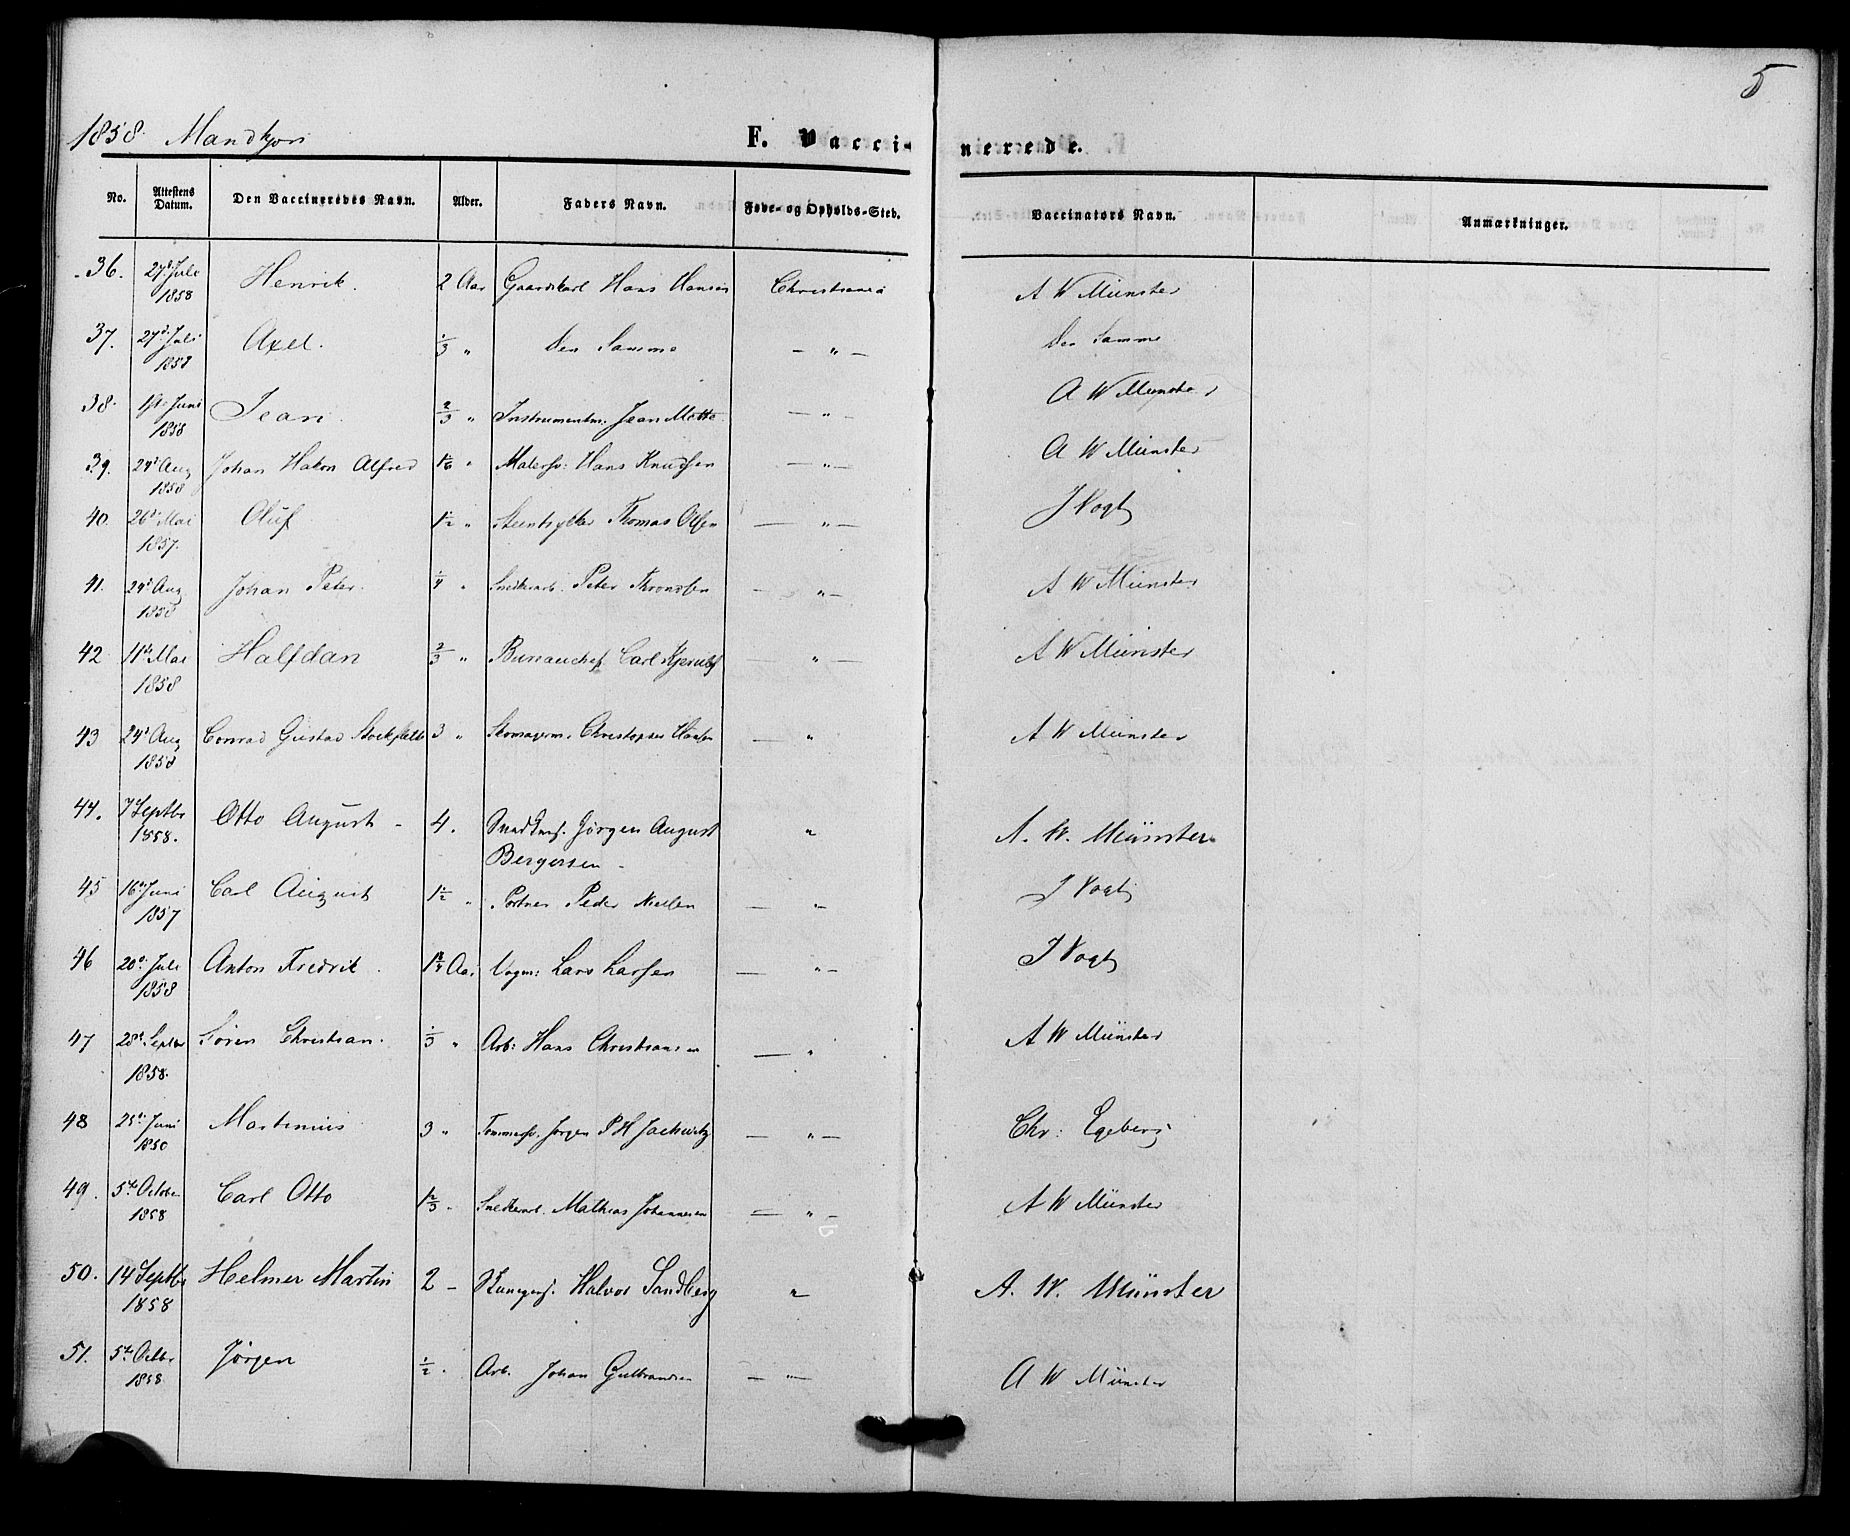 5
1858. Mandkjøn
F. Vaccinerede.
No. Attestens Datum. Den Vaccineredes Navn. Alder. Faders Navn. Føde- og Opholds-Sted. Vaccinators Navn. Anmærkninger.
36. 27d Juli 1858 Henrik. 2 Aar Gaardskarl Hans Hansen Christiania A W Münster
37. 27d Juli 1858 Axel. 1/3 " Den Samme — " — Den Samme
38. 1ste Juni 1858 Jean. 2/3 " Instrumentm: Jean Motte — " — A W Münster
39. 24d Aug 1858 Johan Hakon Alfred " Malersv: Hans Knudsen — " — A W Münster
40. 26d Mai 1857. Oluf 1 1/2 " Thomas Olsen — " — J Vogt
41. 24d Aug 1858 Johan Peter. 1/4 " Snedkerarb. Peter Throndsen — " — A W Münster
42 11te Mai 1858 Halfdan 2/3 " Bureauchef Carl Kjerulf — " — A W Münster
43 24d Aug 1858 Conrad Gustav 3 " Skomagerm. Christopher Hansen — " A W Münster
44. 7 Septbr 1858. Otto August - 4. Jørgen August " A. W. Münster
Bergersen -
45 16d Juni 1857 Carl August 1 1/2 " Portner Peder Nielsen — " — J Vogt
46 20d Juli 1858 Anton Fredrik. 1 3/4 Aar Vogm: Lars Larsen — " — J Vogt
47 28d Septbr 1858. Søren Christian. 1/3 " Arb: Hans Christiansen — " A W Münster
48 25d Juni 1850 Martinius 3 " Tømmersv. Jørgen P H — " — Chr: Egeberg
49. 5te October 1858 Carl Otto 1 2/3 " Snedkerarb. Mathias Johannesen — " — A W Münster
50. 14 Septbr 1858 Helmer Martin 2 - Halvor Sandberg " A. W. Münster
51. 5te Octbr 1858 Jørgen 1/2 " Arb. Johan Gulbrandsen — " — A W Münster